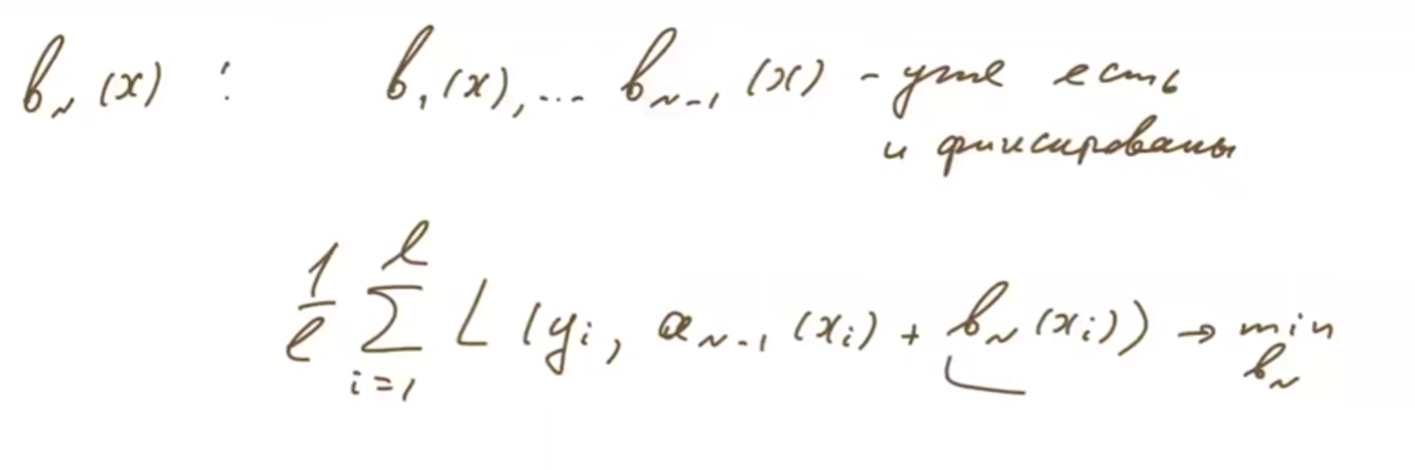 b_N(x) : b_1(x), ... b_{N-1}(x) - уже есть
и фиксированы
\frac{1}{ℓ} \sum_{i=1}^{ℓ} L(y_i, a_{N-1}(x_i) + b_N(x_i)) → \min_{b_N}